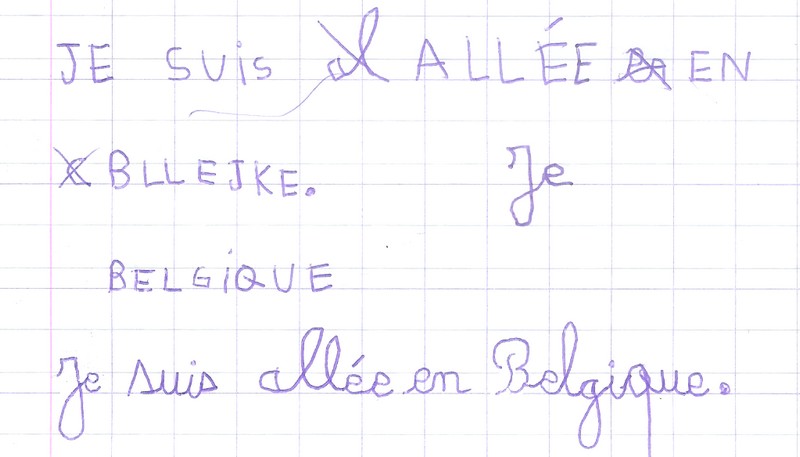 JE SUIS ALLÉE EN
BLLEJKE. Je
BELGIQUE
Je suis allée en Belgique.